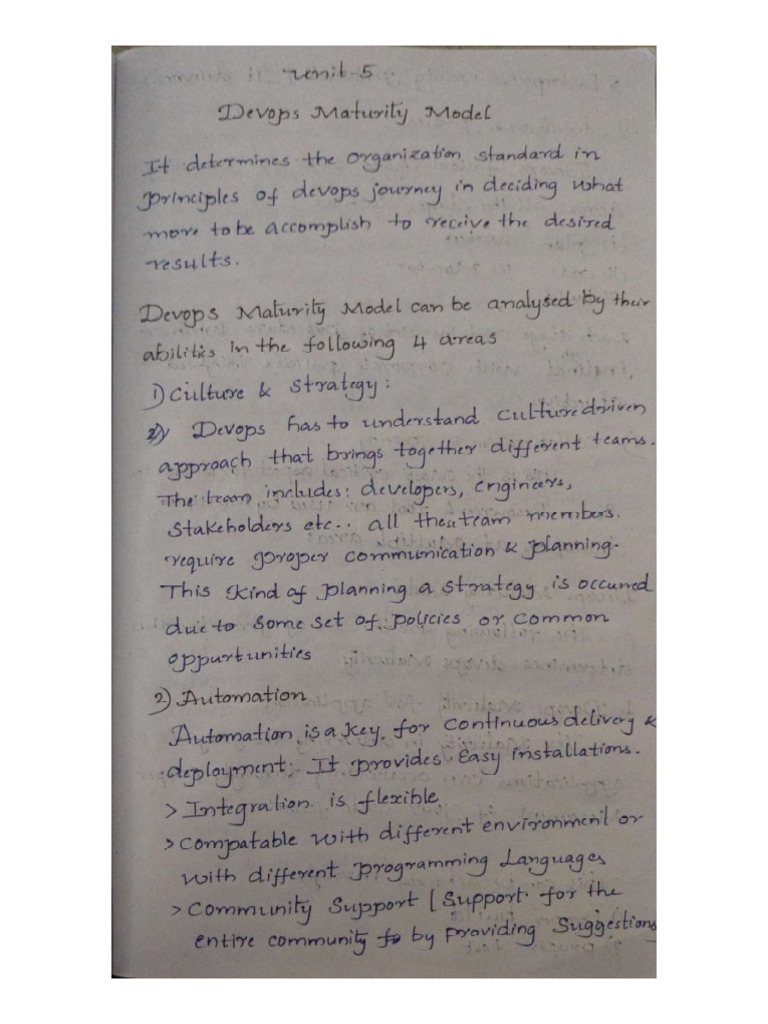 Unit-5
Devops Maturity Model
It determines the organization standard in
principles of devops journey in deciding what
more to be accomplish to receive the desired
results.
Devops Maturity Model can be analysed by their
abilities in the following 4 areas
1) Culture & strategy:
Devops has to understand culture driven
approach that brings together different teams.
The team includes: developers, engineers,
Stakeholders etc.. all the team members.
require proper communication & planning.
This kind of planning a strategy is occured
due to some set of policies or common
oppurtunities
2) Automation
Automation is a key for continuous delivery &
deployment; It provides Easy installations.
> Integration is flexible.
> Compatable with different environment or
with different programming Languages
> Community Support [Support for the
entire community by providing Suggestions